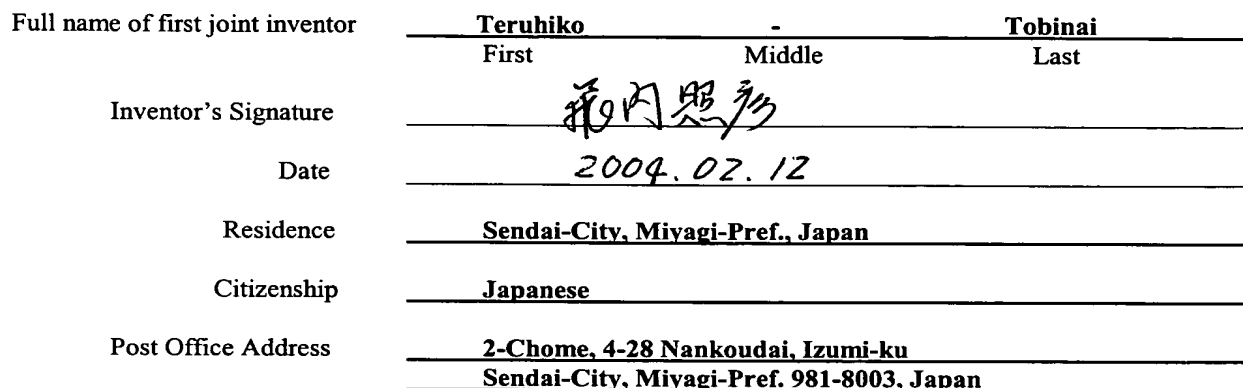 Full name of first joint inventor Teruhiko - Tobinai
First Middle Last
Inventor's Signature 飛内照彦
Date 2004.02.12
Residence Sendai-City, Miyagi-Pref., Japan
Citizenship Japanese
Post Office Address 2-Chome, 4-28 Nankoudai, Izumi-ku
Sendai-City, Miyagi-Pref. 981-8003, Japan